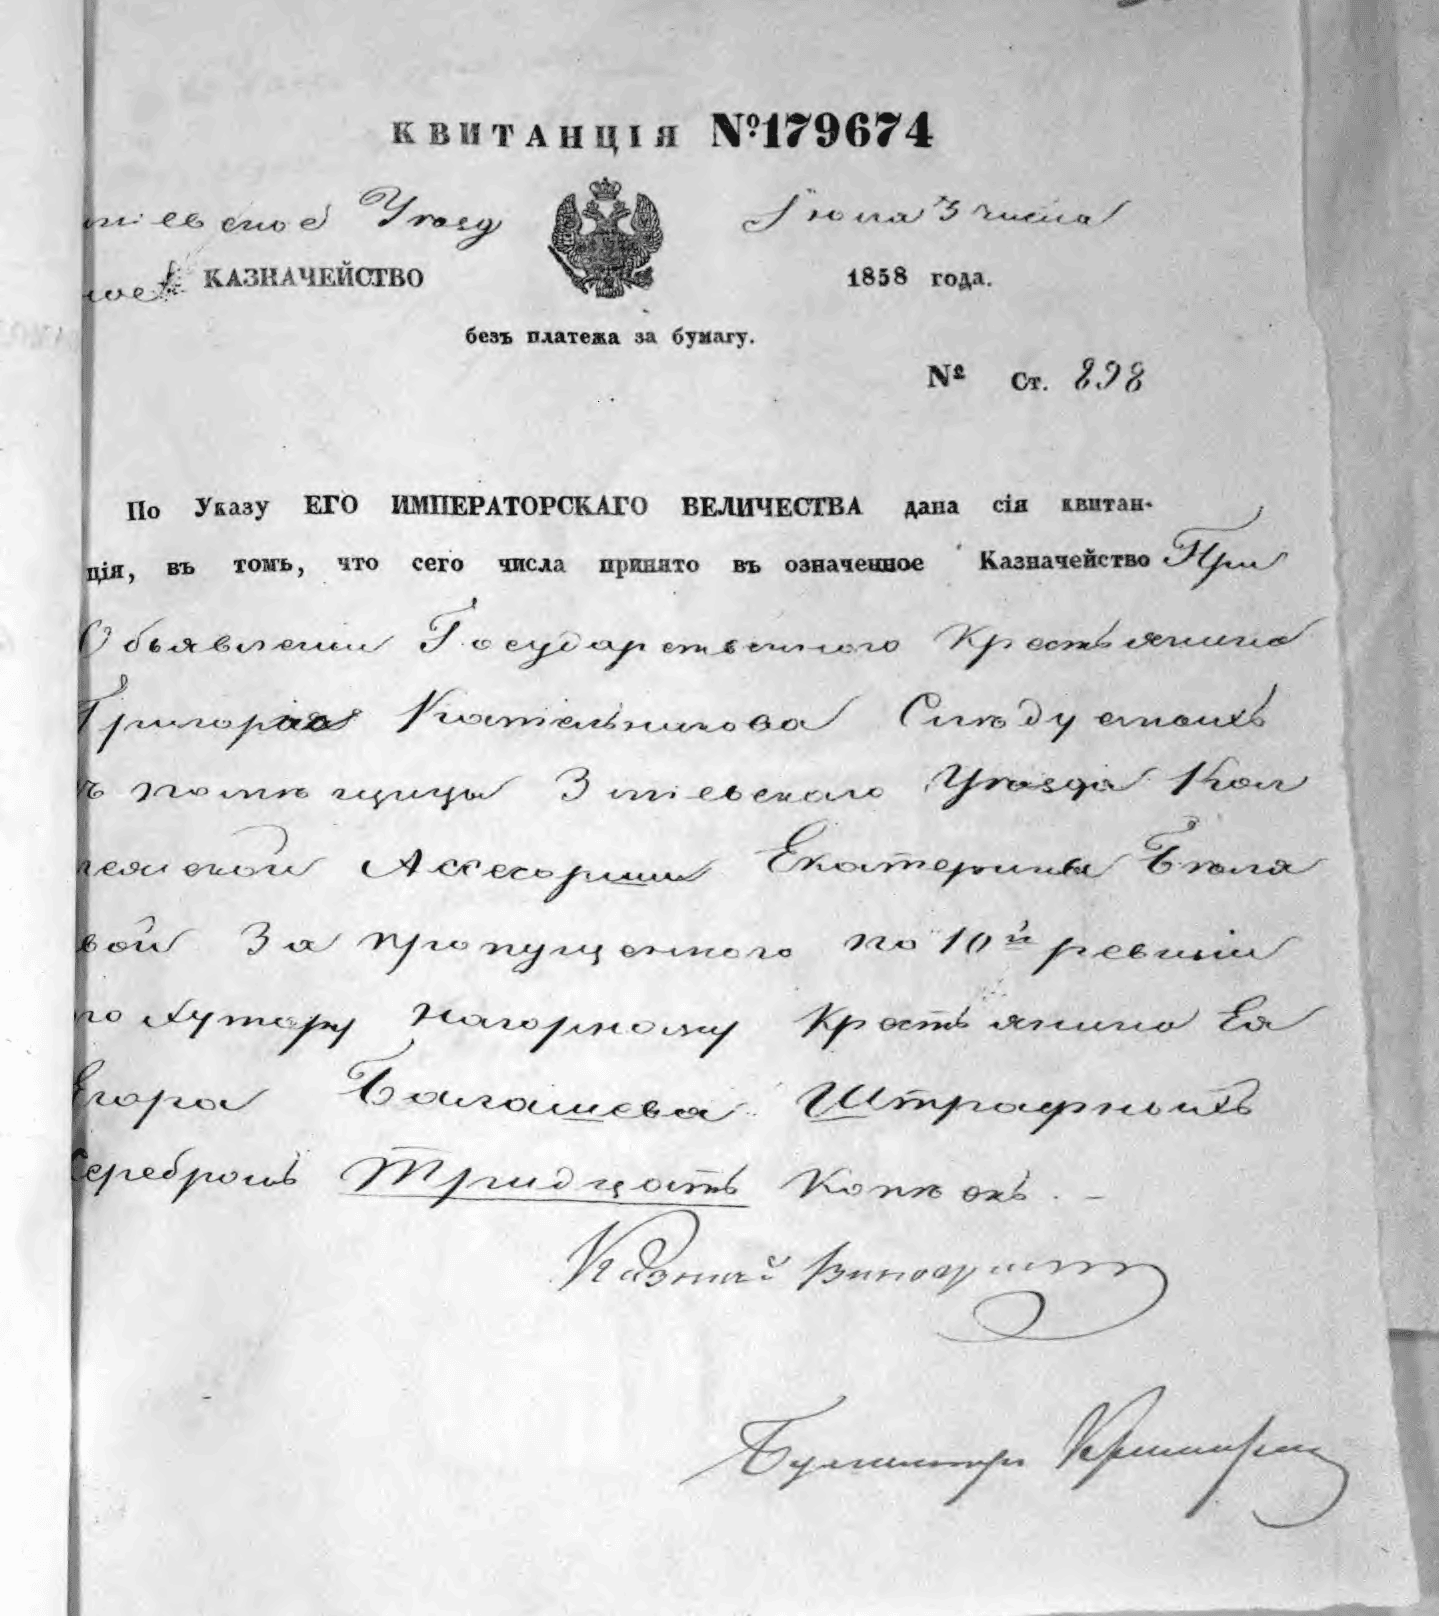 КВИТАНЦІЯ №179674
міевское Уѣзд
ное КАЗНАЧЕЙСТВО
Іюня 3 числа
1858 года.
безъ платежа за бумагу.
№ Ст. 898
По Указу ЕГО ИМПЕРАТОРСКАГО ВЕЛИЧЕСТВА дана сія квитан-
ція, въ томъ, что сего числа принято въ означенное Казначейство При
Объявленіи Государственного Крестьянина
Григорія Кательникова Слѣдуемыхъ
ъ помѣщицы Зміевскаго Уѣзда Кол
лежской Ассесорши Екатерины Бѣля
вой За пропущенного по 10й ревизіи
по хутору Нагорному Крестьянина Ея
Егора Балашева Штрафныхъ
Серебромъ Тридцать Копѣекъ. –
Казначей
Бухгалтеръ